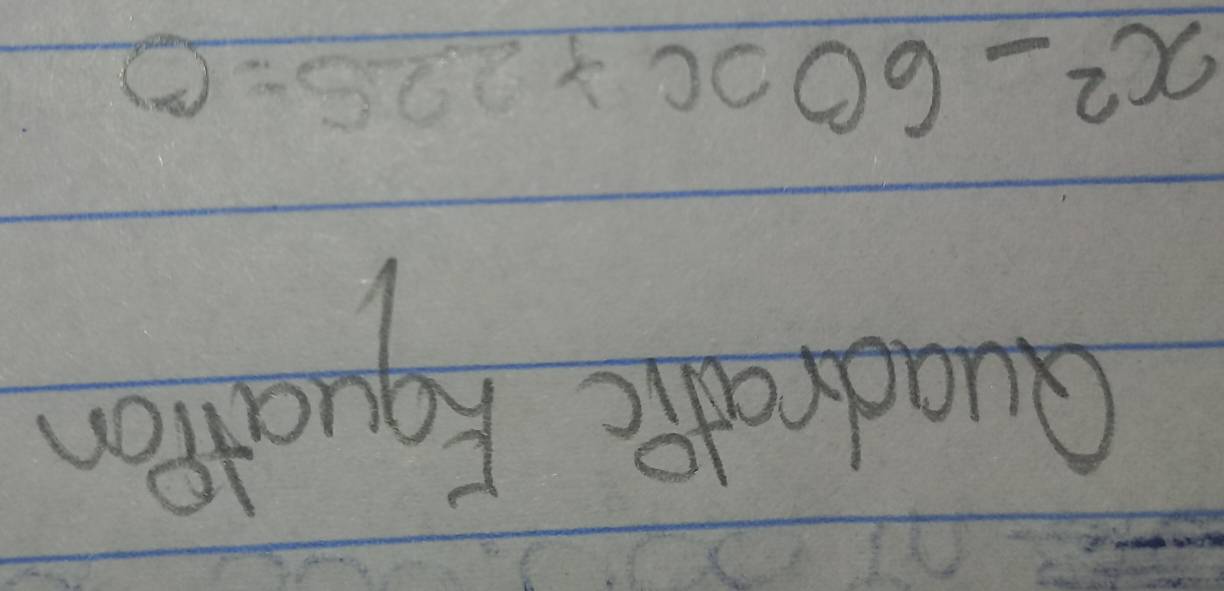 Quadratic Equation
x² - 60x + 225 = 0